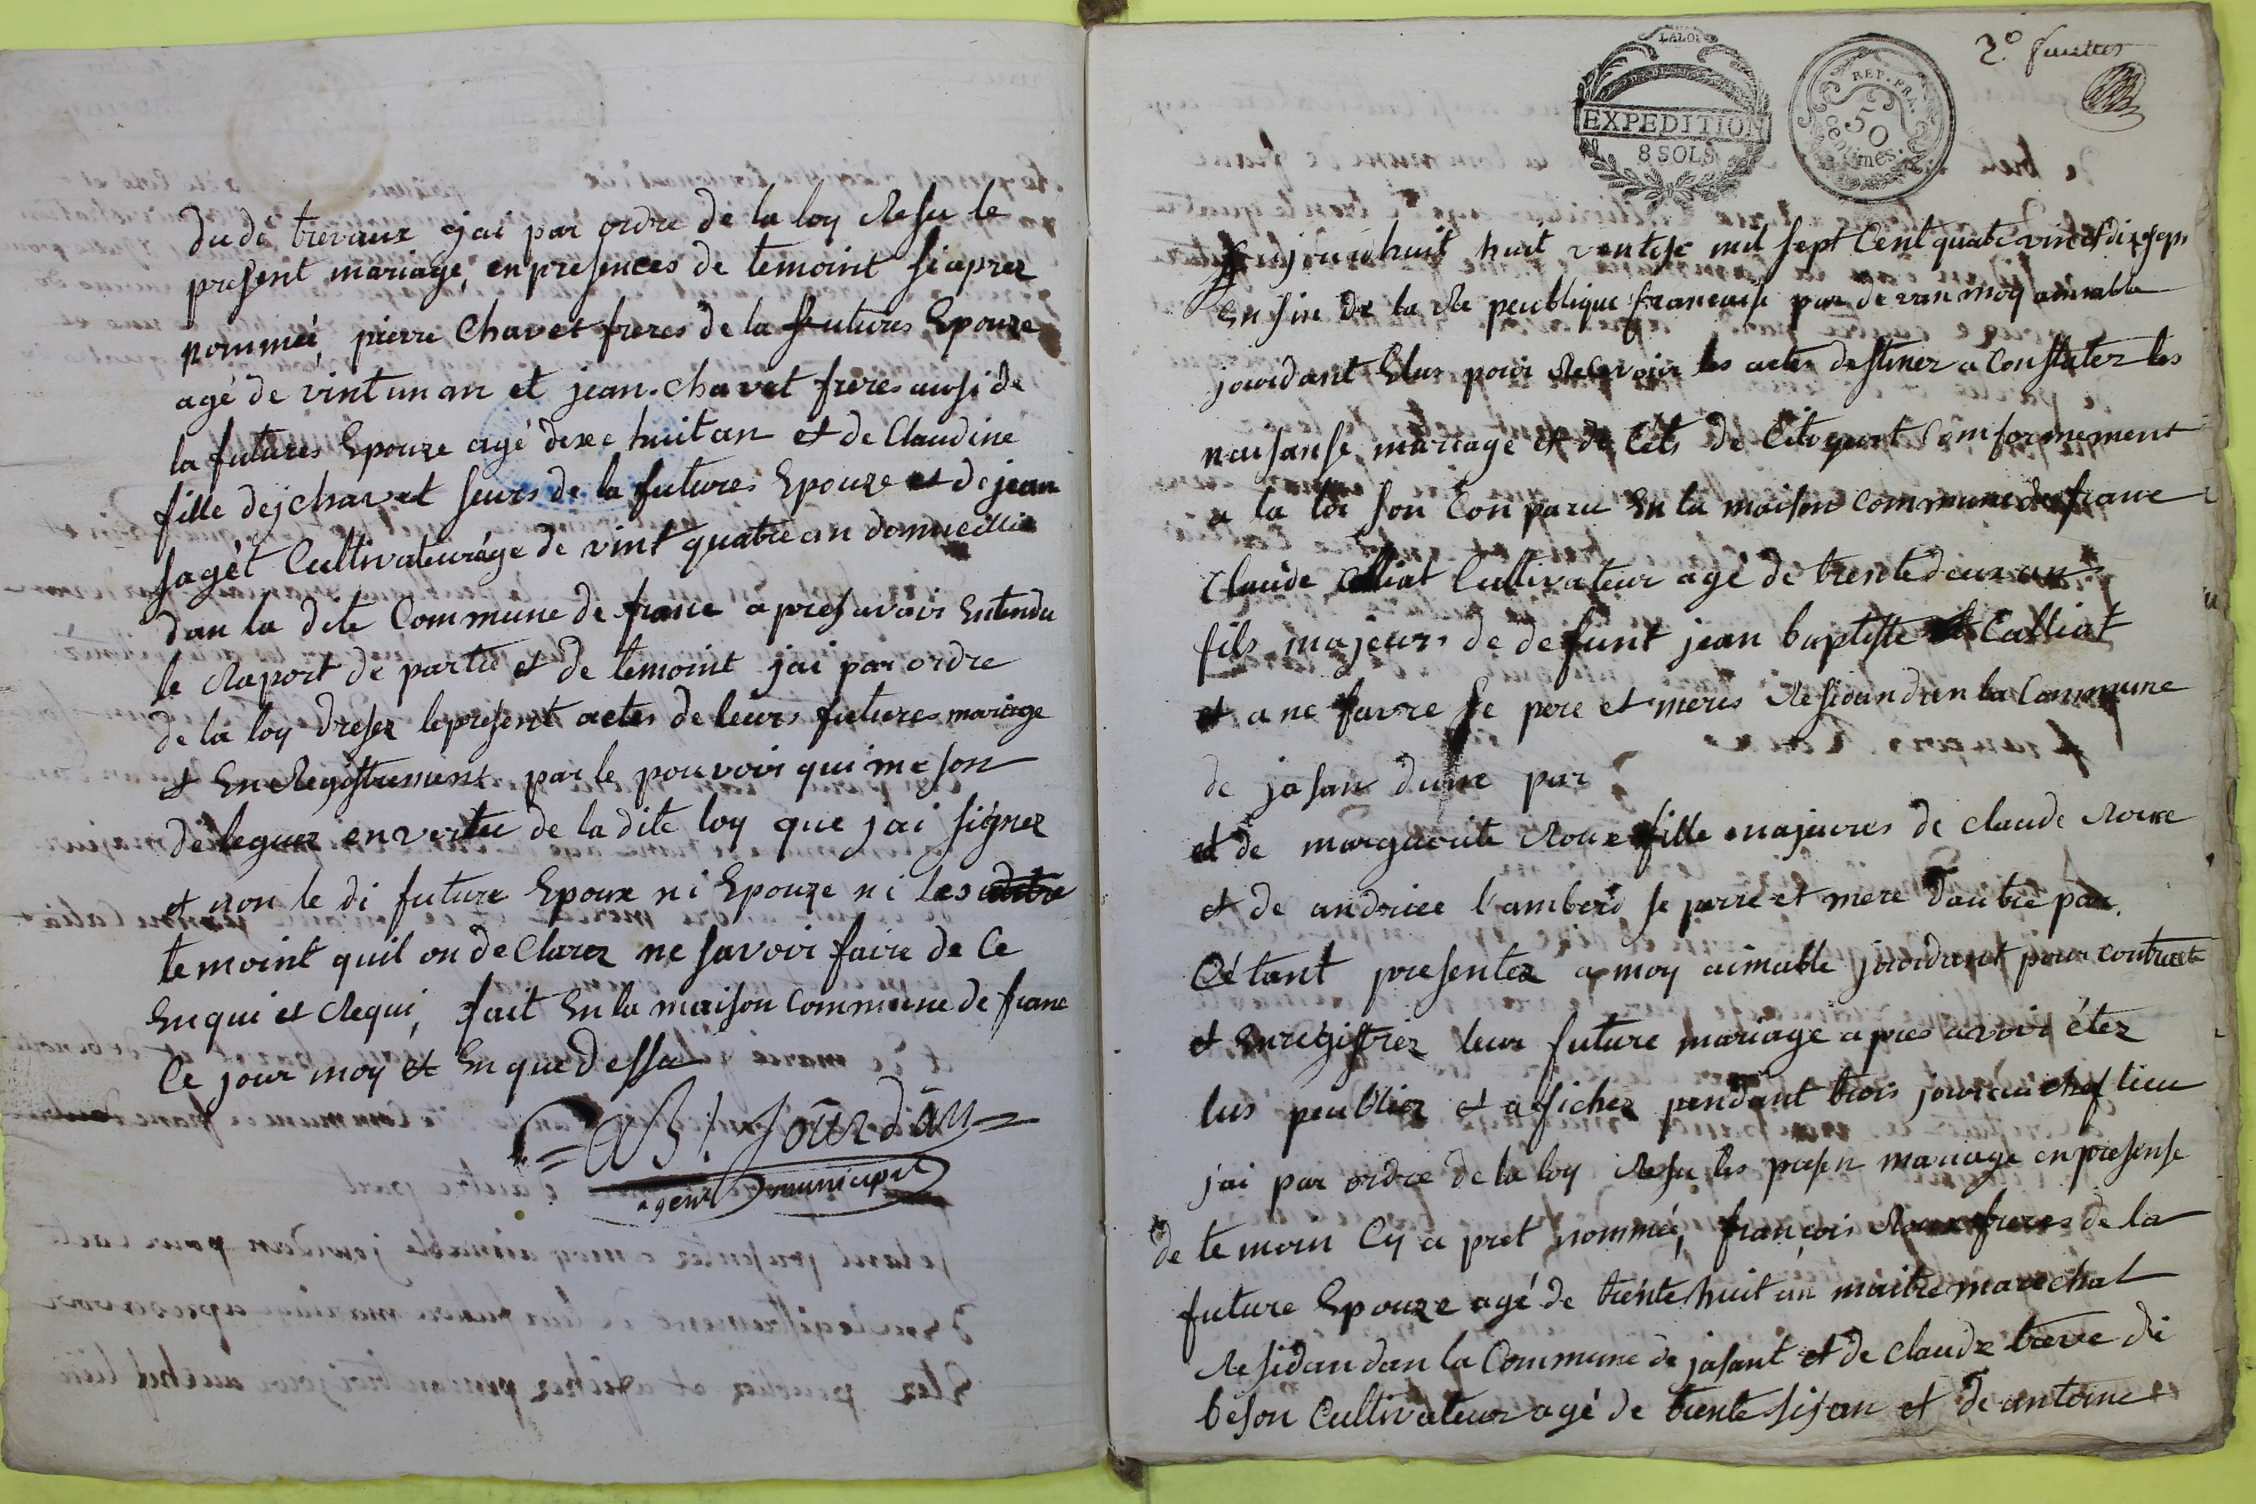 du dé trevaux jai par ordre de la loy Resu le
present mariage, en presences de temoint si aprez
nommeé, pierre Chavet freres de la futures Epouze
agé de vint un an et jean. chavet freres ausi de
la futures Epouze agé dixe huit an et de Claudine
fille dej chavet seurs de la futures Epouze et de jean
sagét Cultivateur áge de vint quatre an domicillié
dan la dite Commune de franc apres avoir Entendu
le Raport de partie et de temoint jai par ordre
de la loy dresez le present actes de leurs futures mariage
et En Registrement par le pouvoir qui me son
deleguez en vertu de la dite loy que jai signez
et non le di future Epoux ni Epouze ni les
temoint quil on de Clarez ne savoir faire de Ce
Enqui et Requi, fait En la maison Commune de franc
Ce jour moy et En que dessu
jourdan
agent municipal
2e. feuiller
LA LOI
EXPEDITION
8 SOLS
REP. FRA.
50
centimes.
jourdhuit huit ventose mil sept Cent quatre vint dix sept
En sire de la Re peublique francaise par de van moy aimable
jourdant Elus pour Recevoir les actes destinez a Constater les
naisanse mariage et de Cets de Citoyent Comformement
a la loi son Con paru En la maison commune de franc
Claude Calliat Cultivateur agé de trente deux an
fils majeurs de defunt jean baptiste Calliat
et a ne favre se pere et meres Residan dan la Commune
de jasan dune par
et de margueritte Roux fille majeures de claude Roux
et de andriee lamberd se perre et mere Dautre par.
Cétant presentez a moy aimable jourdant pour contracte
et Enregistrez leur future mariage apres avoir étez
lus peubliez et afichez pendant trois jour au chef lieu
jai par ordre de la loy Resu les presen mariage en presense
de te moin Cy a pret nommeé, françois Roux freres de la
future Epouze agé de trente huit an maitre marechal
Residan dan la Commune de jasant et de claude treve di
beson Cultivateur agé de trente sis an et de antoine